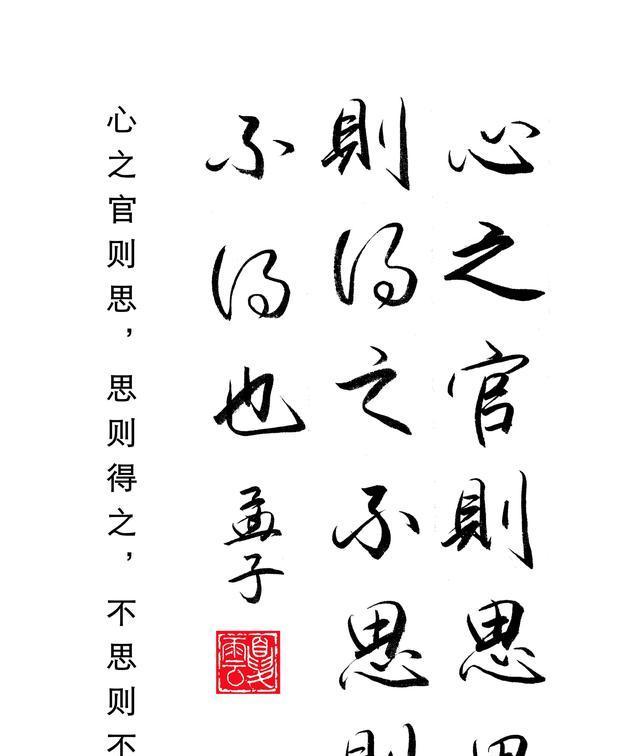 心之官則思思
則得之不思則
不得也
孟子
夏雲
心之官则思，思则得之，不思则不